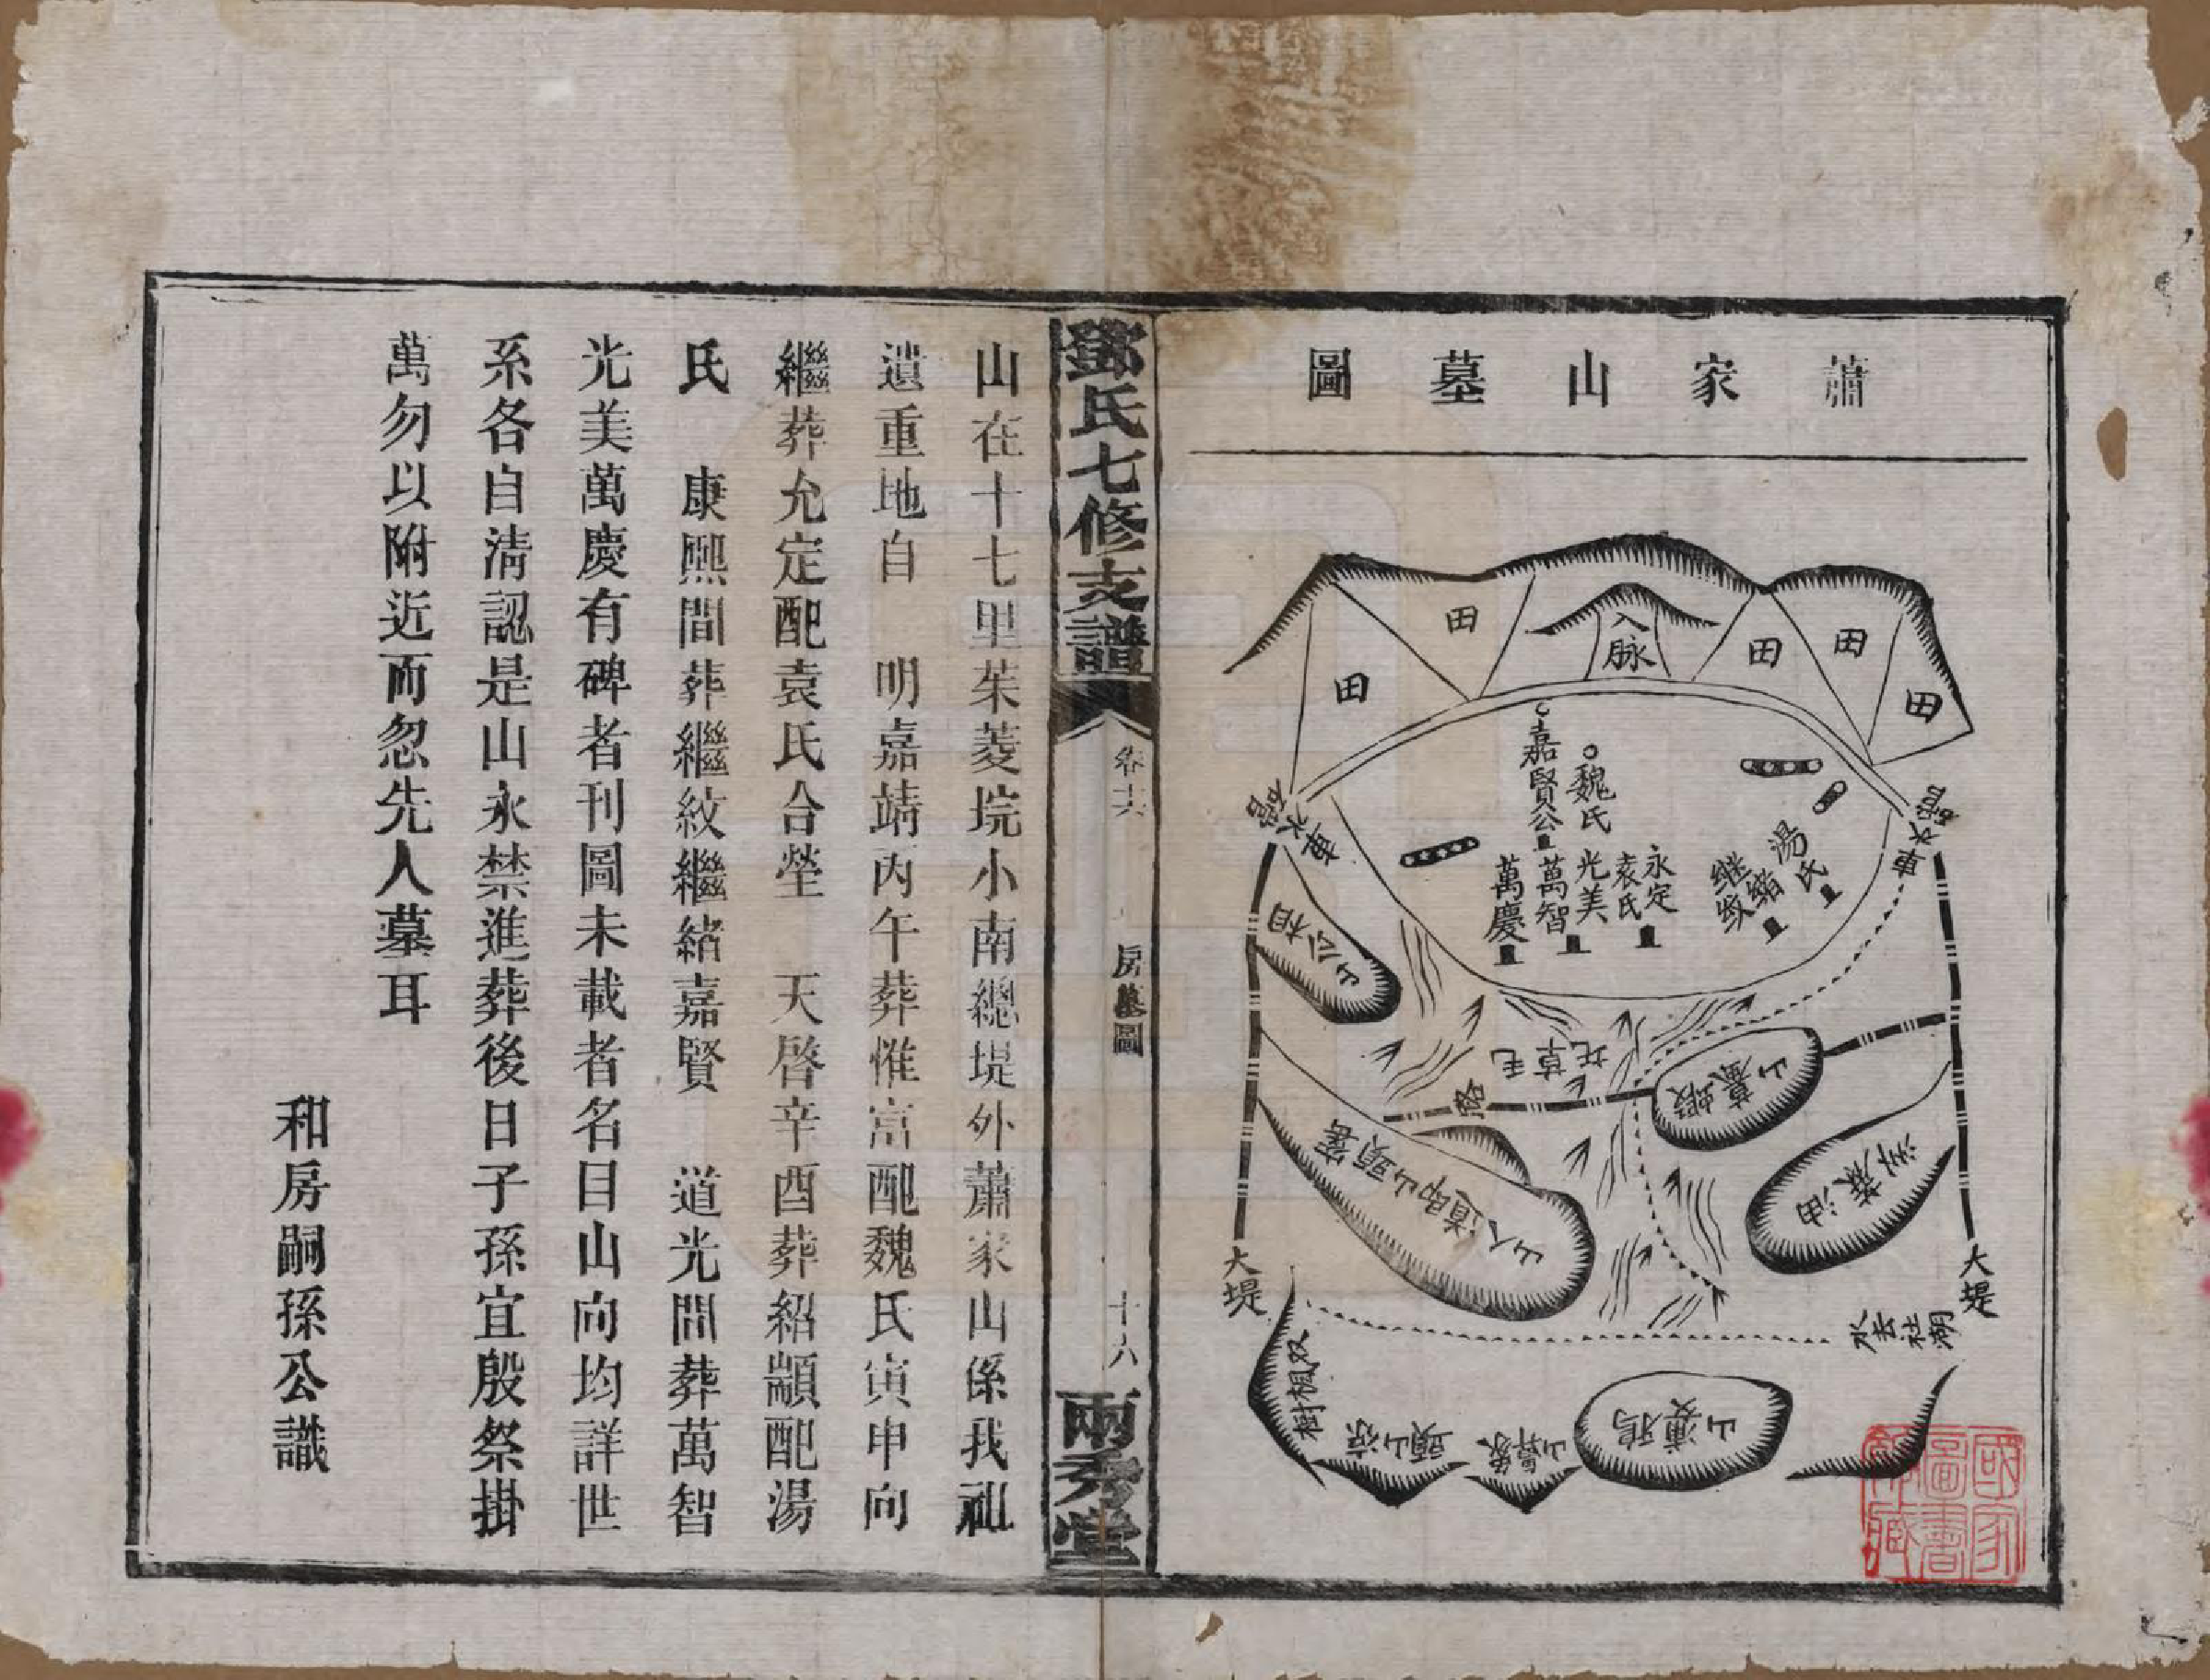 蕭家山墓圖
田
田
入脉
田
田
田
嘉賢公
魏氏
萬慶
萬智
光美
袁氏
永定
继纹
緒
湯氏
車水
車水
相公山
毛草坑
路
蝦蟇山
油蔴洲
大堤
大堤
湖社去水
双楓樹
涼山頭
象鼻山
鴉灘山
鄧氏七修支譜
卷十六
房墓圖
十八
兩秀堂
山在十七里茱菱垸小南總堤外蕭家山係我祖
遺重地自　明嘉靖丙午葬惟富配魏氏寅申向
繼葬允定配袁氏合塋　天啓辛酉葬紹顓配湯
氏　康熙間葬繼紋繼緒嘉賢　道光間葬萬智
光美萬慶有碑者刊圖未載者名目山向均詳世
系各自清認是山永禁進葬後日子孫宜殷祭掛
萬勿以附近而忽先人墓耳
和房嗣孫公識
國家圖書館藏